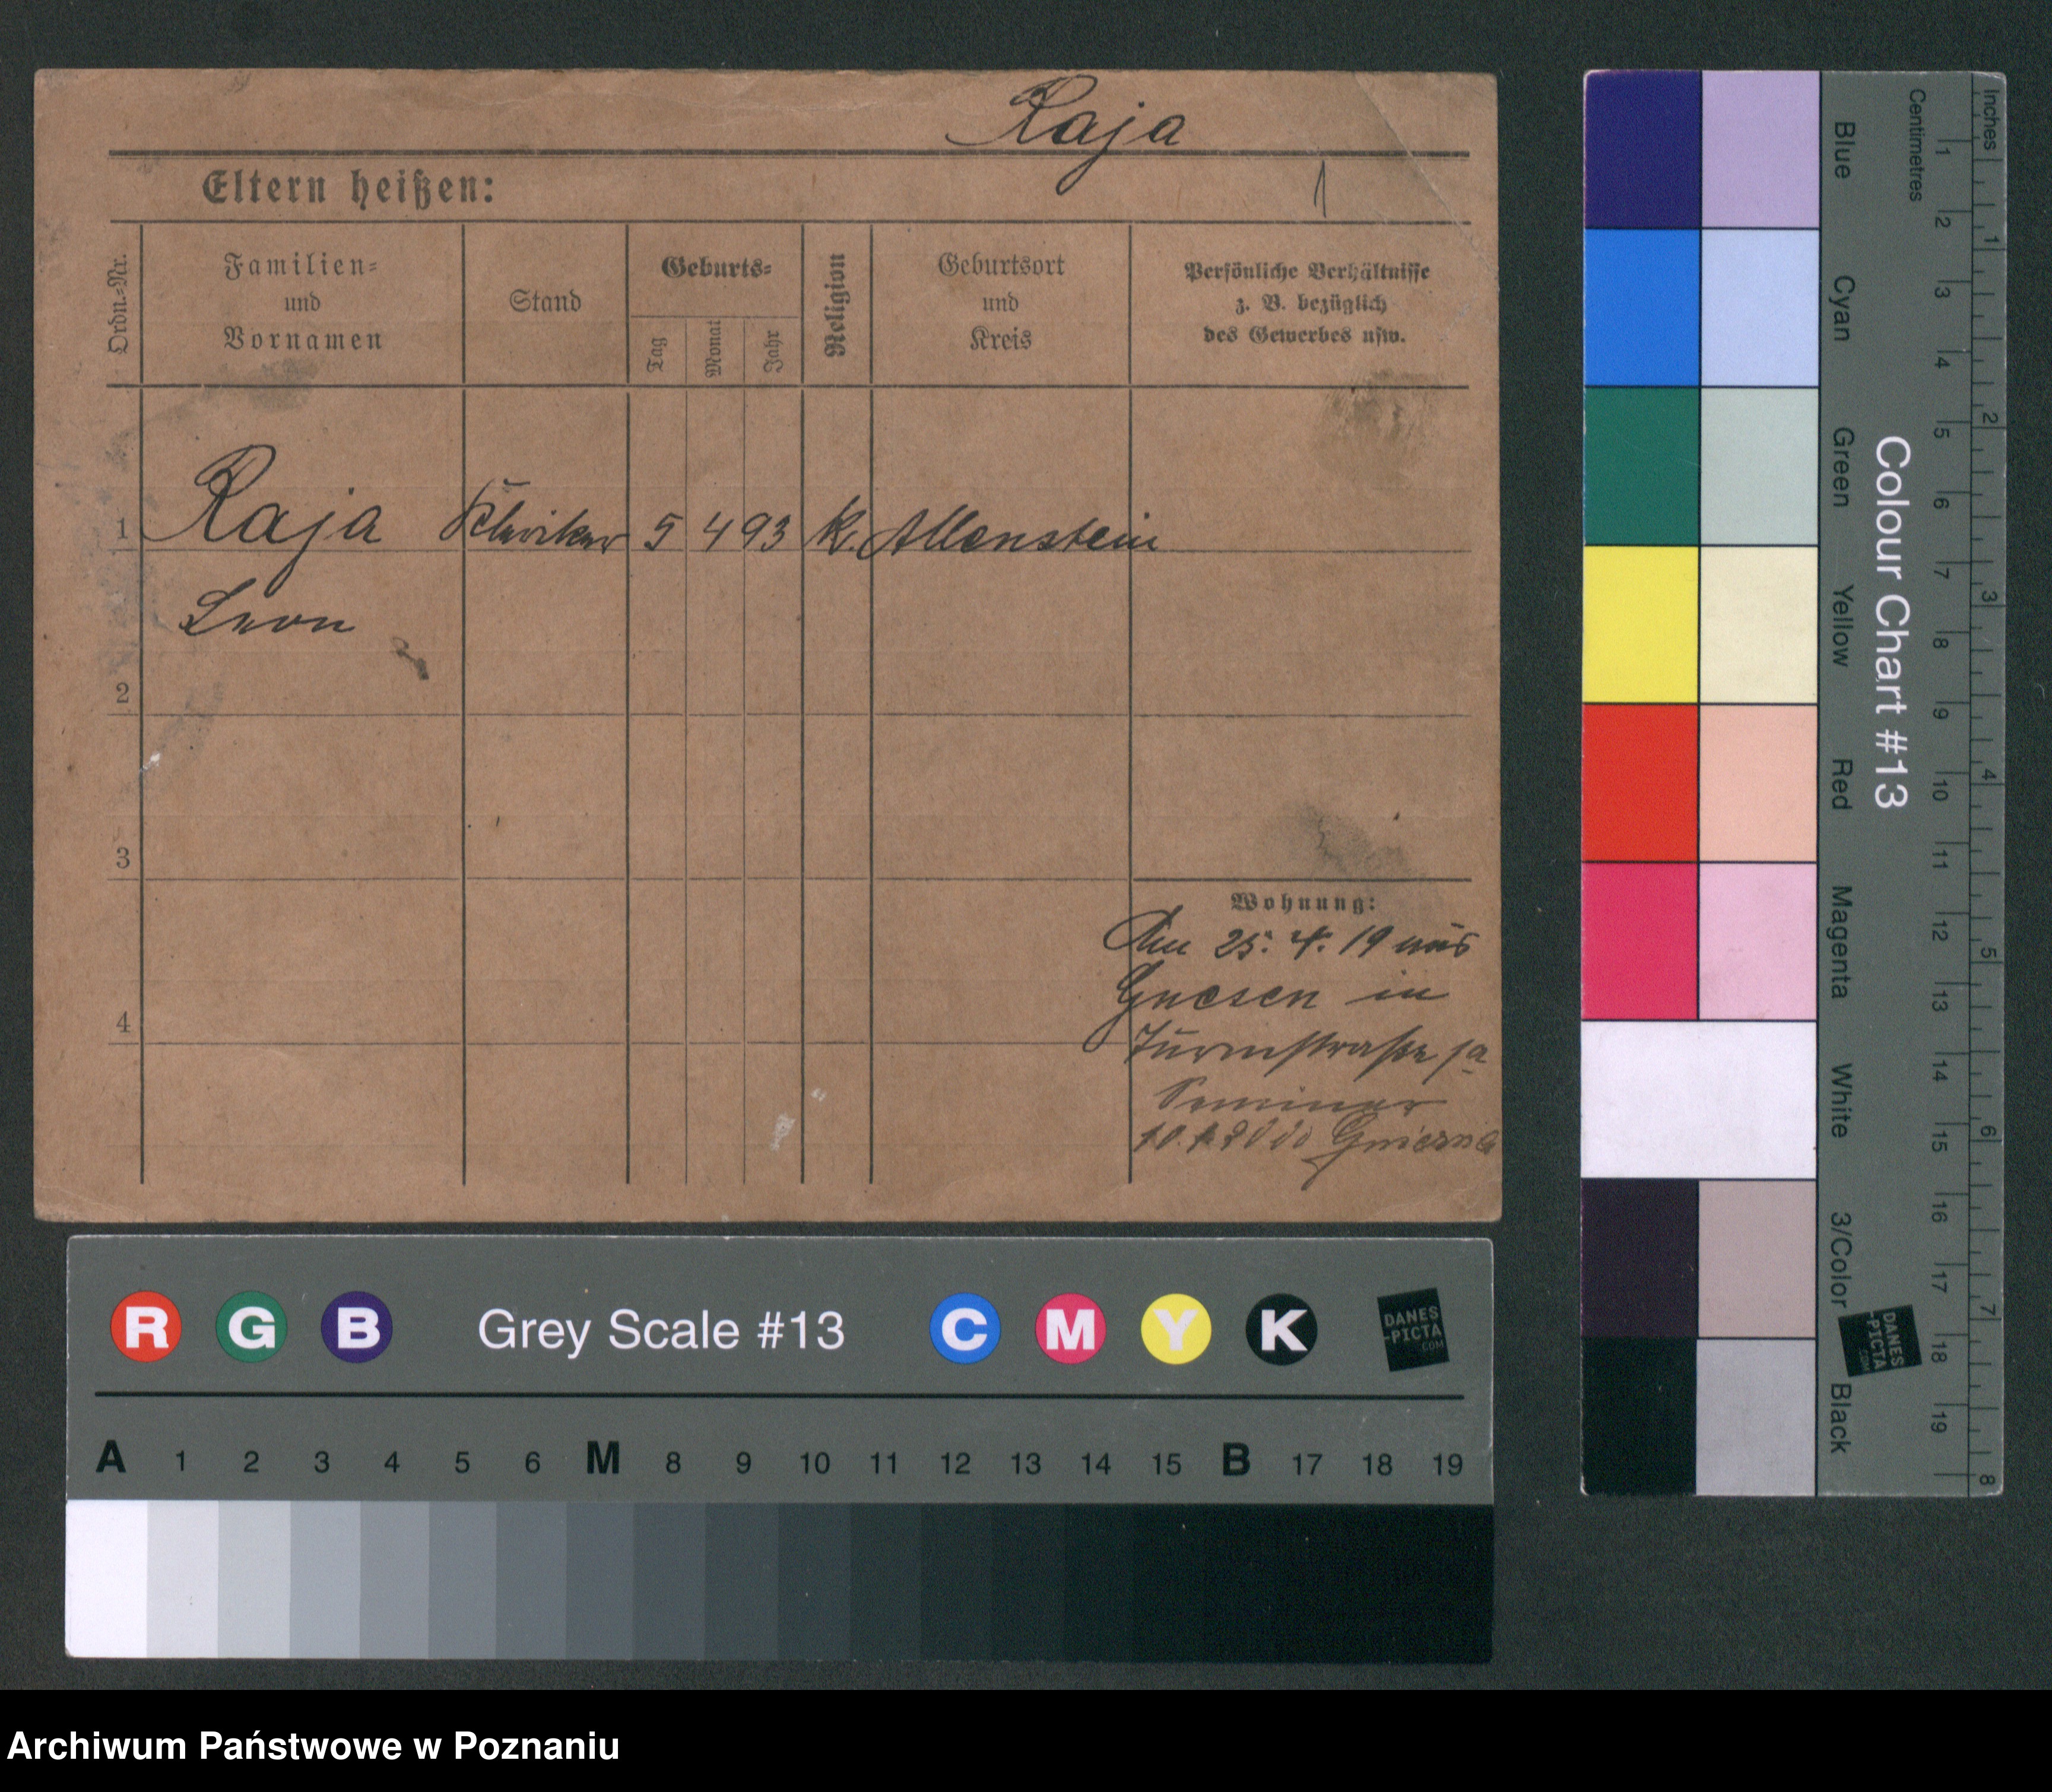 Raja
Eltern heißen:
1
Ordn=Nr.
Familien=
und
Vornamen
Stand
Geburts=
Tag
Monat
Jahr
Religion
Geburtsort
und
Kreis
Persönliche Verhältnisse
z. B. bezüglich
des Gewerbes usw.
1 Raja Kleriker 5 4 93 k. Allenstein
Leon
2
3
4
Wohnung:
Am 25. 4. 19 aus
Gnesen in
Turmstraße
Seminar
Gniezna
Blue
Cyan
Green
Yellow
Red
Magenta
White
3/Color
Black
Colour Chart #13
Centimetres
1 2 3 4 5 6 7 8 9 10 11 12 13 14 15 16 17 18 19
Inches
1 2 3 4 5 6 7 8
DANES
-PICTA
.COM
R G B Grey Scale #13 C M Y K
DANES
-PICTA
.COM
A 1 2 3 4 5 6 M 8 9 10 11 12 13 14 15 B 17 18 19
Archiwum Państwowe w Poznaniu